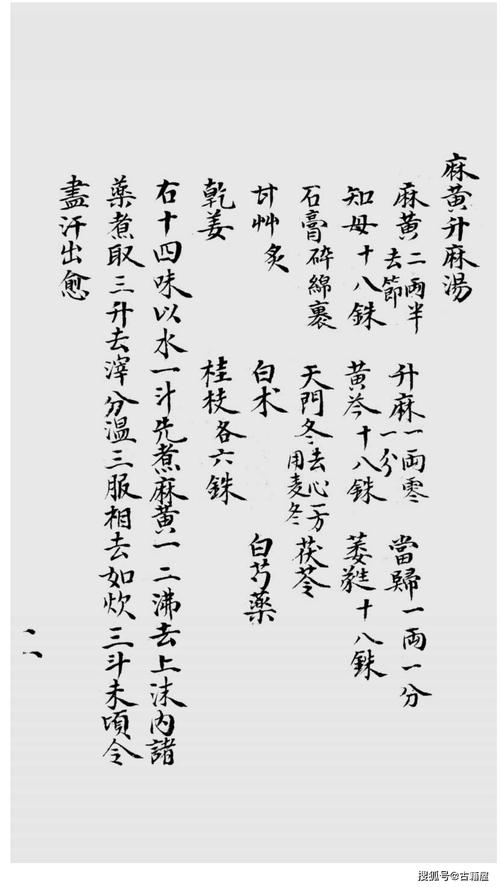 麻黄升麻湯
麻黄二兩半去節 升麻一兩零一分 當歸一兩一分
知母十八銖 黄芩十八銖 萎蕤十八銖
石膏碎綿裹 天門冬去心一方用麦冬 茯苓
甘艸炙 白术 白芍藥
乾姜 桂枝各六銖
右十四味以水一斗先煮麻黄一二沸去上沫内諸
藥煮取三升去滓分温三服相去如炊三斗未頃令
盡汗出愈
二一
搜狐号@古籍屋